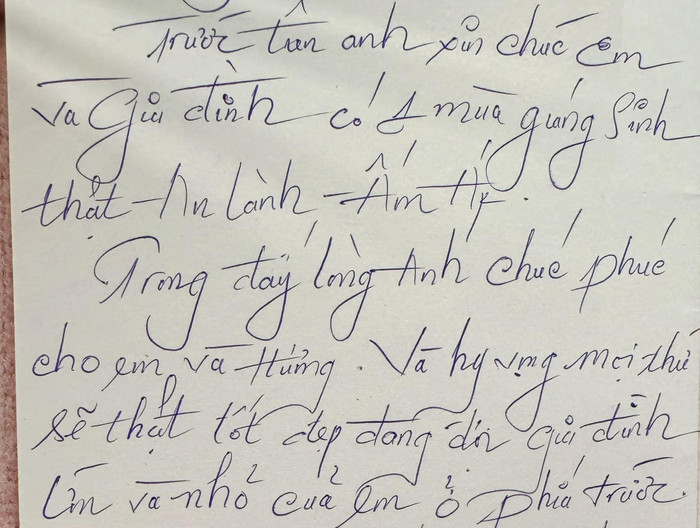 Trước tiên anh xin chúc em
và Gia đình có 1 mùa giáng Sinh
thật An Lành - Ấm Áp.
Trong đáy lòng Anh chúc phúc
cho em và Hưng. Và hy vọng mọi thứ
sẽ thật tốt đẹp đang đón gia đình
lớn và nhỏ của em ở phía trước.